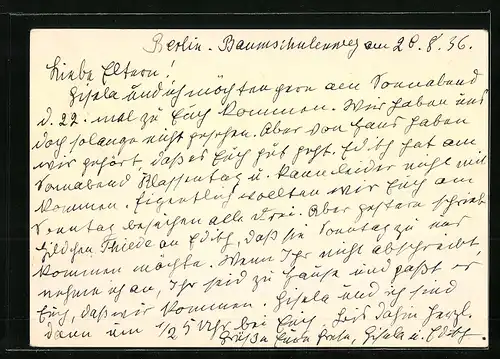 Berlin-Baumschulenweg am 20.8.36.
Liebe Eltern!
Gisela und ich möchten gern am Sonnabend
d. 22. mal zu Euch kommen. Wir haben uns
doch solange nicht gesehen. Aber von Hans haben
wir gehört, daß es Euch gut geht. Edith hat am
Sonnabend Klassentag u. kann leider nicht mit
kommen. Eigentlich wollten wir Euch am
Sonntag besuchen alle drei. Aber gestern schrieb
Hildchen Thiede an Edith, daß sie Sonntag zu uns
kommen möchte. Wenn Ihr nicht abschreibt,
nehme ich an, Ihr seid zu Hause und paßt es
Euch, daß wir kommen. Gisela und ich sind
dann um 1/25 Uhr bei Euch. Bis dahin herzl.
Grüße Eure Gisela u. Edith